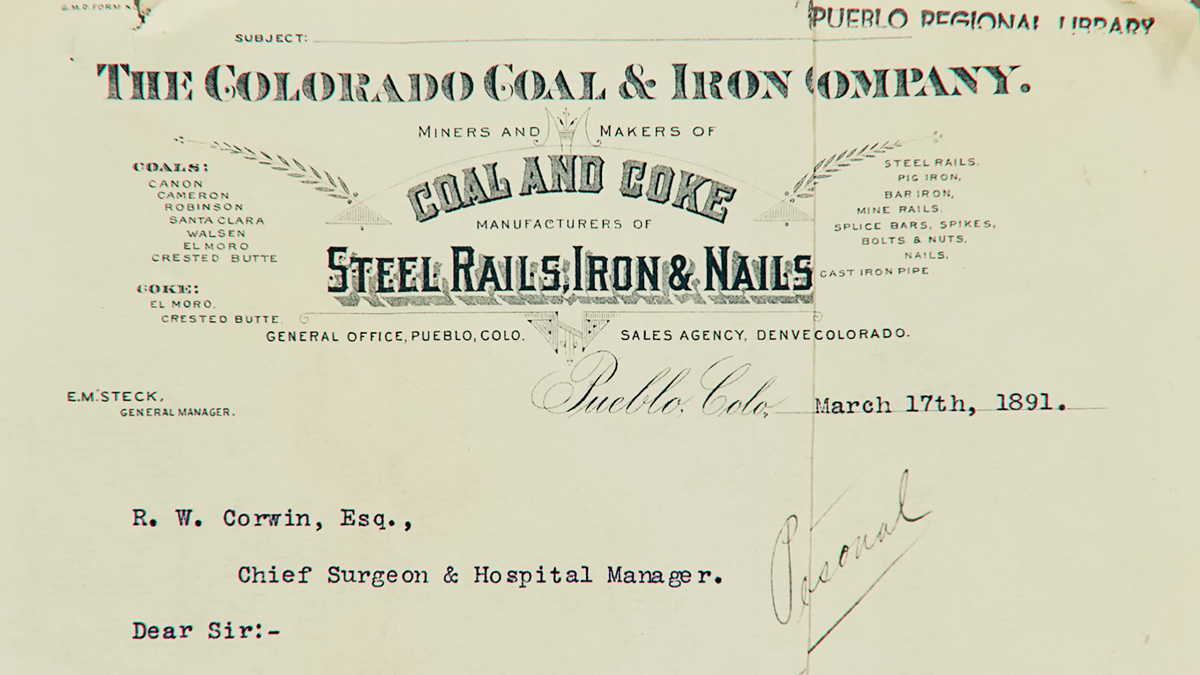 G.M.O. FORM N
PUEBLO REGIONAL LIBRARY
SUBJECT:
THE COLORADO COAL & IRON COMPANY.
MINERS AND MAKERS OF
COAL AND COKE
MANUFACTURERS OF
STEEL RAILS, IRON & NAILS
COALS:
CANON
CAMERON
ROBINSON
SANTA CLARA
WALSEN
EL MORO
CRESTED BUTTE
COKE:
EL MORO.
CRESTED BUTTE.
STEEL RAILS.
PIG IRON,
BAR IRON,
MINE RAILS.
SPLICE BARS, SPIKES,
BOLTS & NUTS,
NAILS.
CAST IRON PIPE.
GENERAL OFFICE, PUEBLO, COLO. SALES AGENCY, DENVECOLORADO.
E.M. STECK,
GENERAL MANAGER.
Pueblo, Colo, March 17th, 1891.
Personal
R. W. Corwin, Esq.,
Chief Surgeon & Hospital Manager.
Dear Sir:-